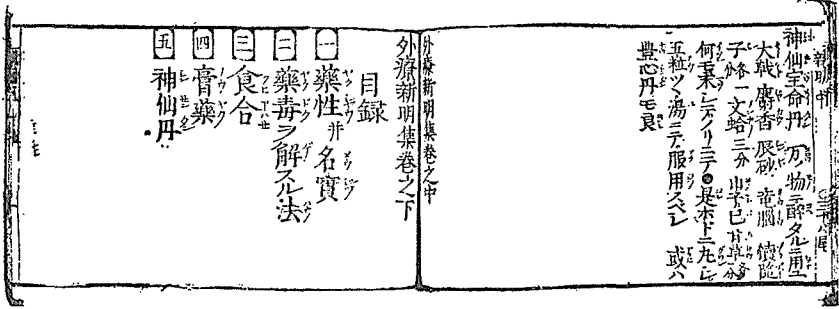 神仙宝命丹 万ノ物ニ酔タルニ用ユ
大戟 麝香 辰砂 竜脳 續随
子各一文蛤三分 山子已甘草一分
何モ末シテノリニテ●是ホドニ丸シ
五粒ツヽ湯ニテ服用スベシ 或ハ
豊心丹モ良
外療新明集巻之中
外療新明集巻之下
目録
一 藥性并名寳
二 藥毒ヲ解スル法
三 食合
四 膏藥
五 神仙丹